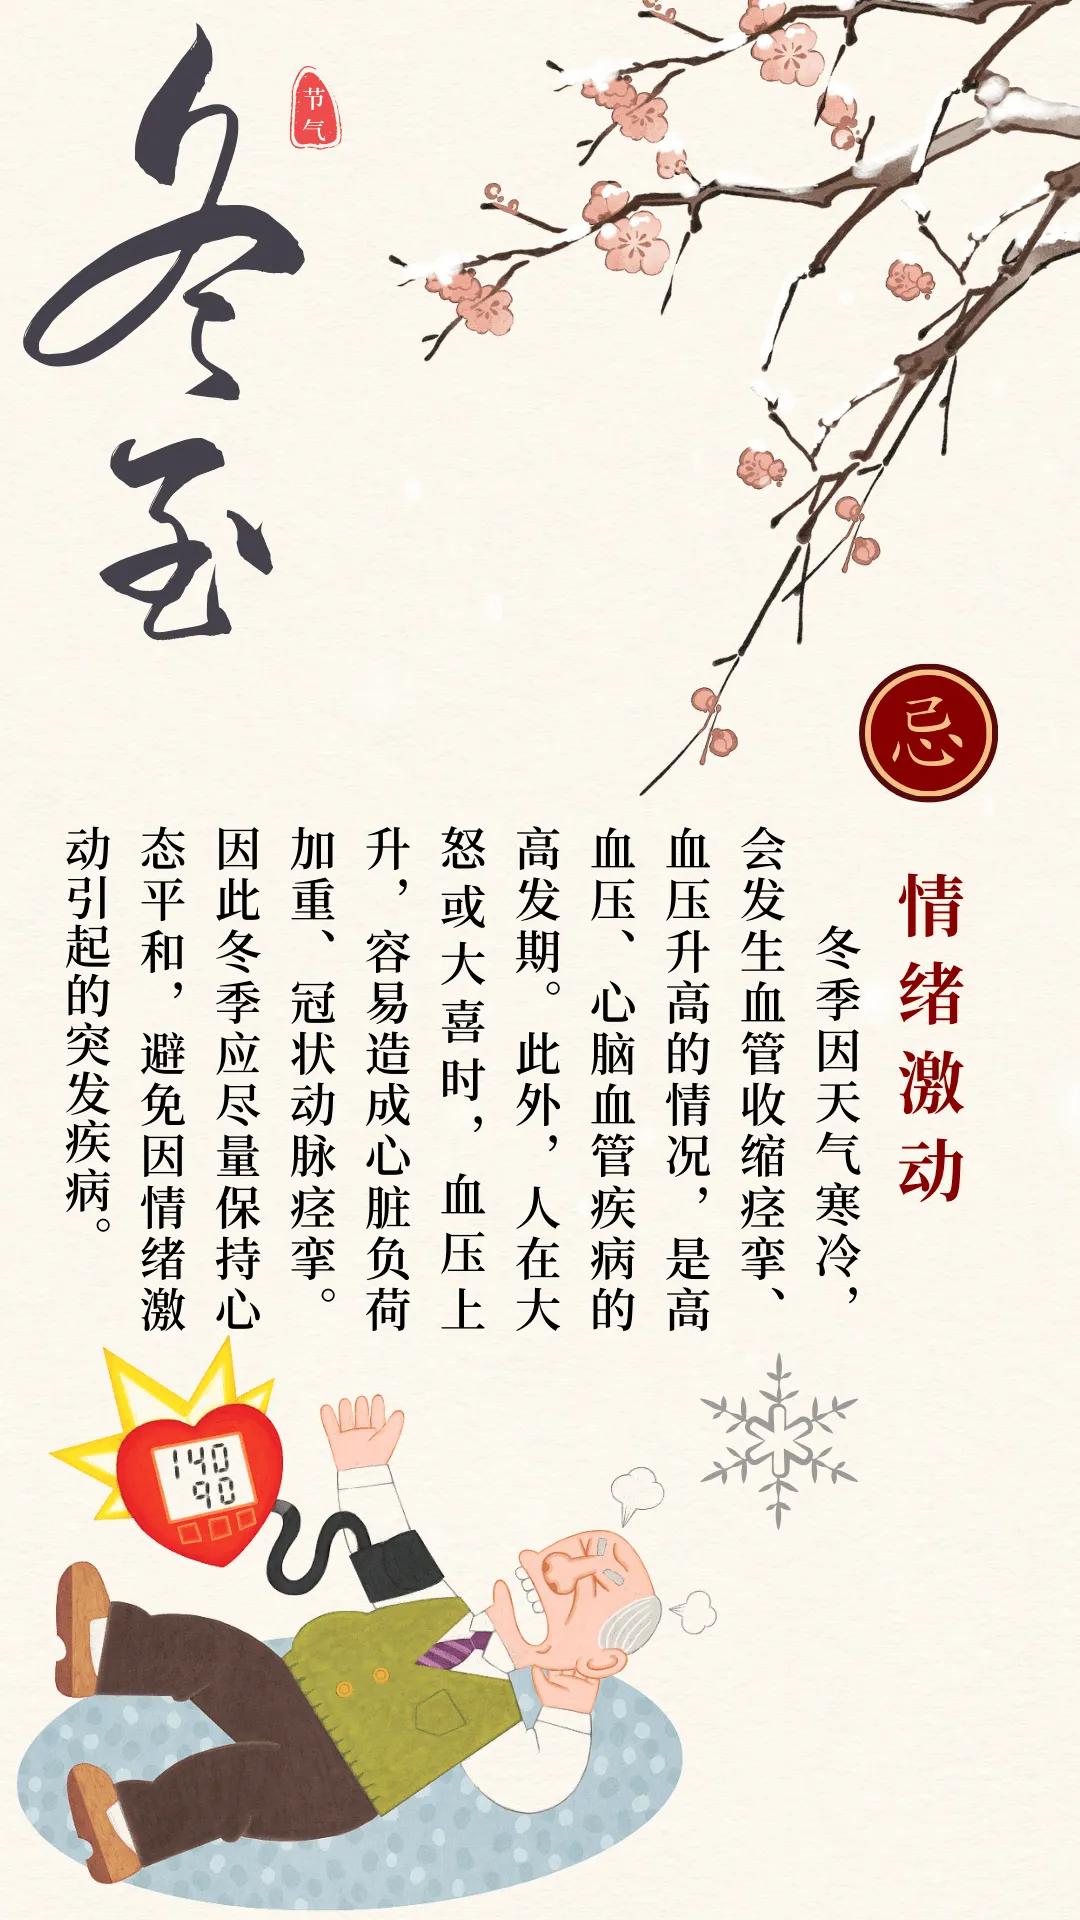 冬至
节气
忌
情绪激动
冬季因天气寒冷，
会发生血管收缩痉挛、
血压升高的情况，是高
血压、心脑血管疾病的
高发期。此外，人在大
怒或大喜时，血压上
升，容易造成心脏负荷
加重、冠状动脉痉挛。
因此冬季应尽量保持心
态平和，避免因情绪激
动引起的突发疾病。
140
90